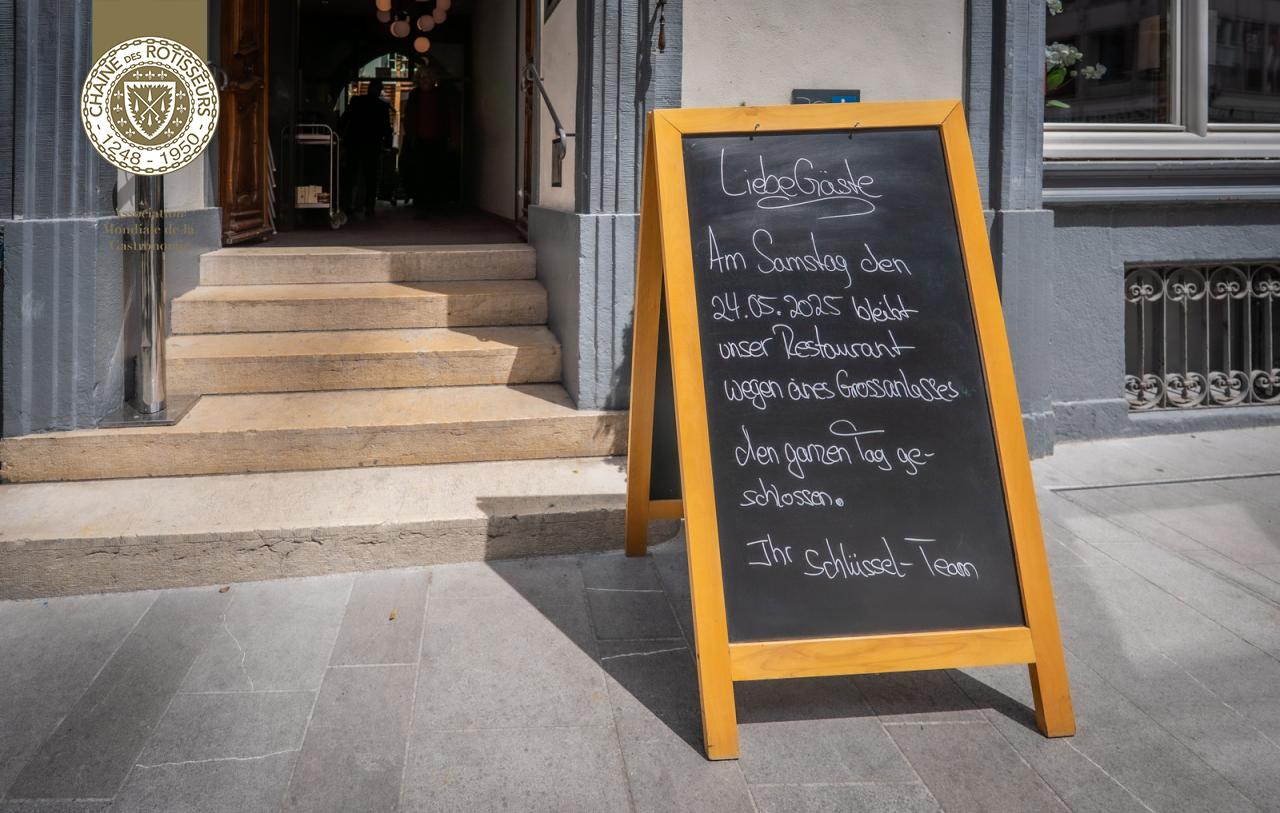 CHAINE DES ROTISSEURS
1248 - 1950
Association
Mondiale de la
Gastronomie
Liebe Gäste
Am Samstag den
24.05.2025 bleibt
unser Restaurant
wegen eines Grossanlasses
den ganzen Tag ge-
schlossen.
Ihr Schlüssel-Team